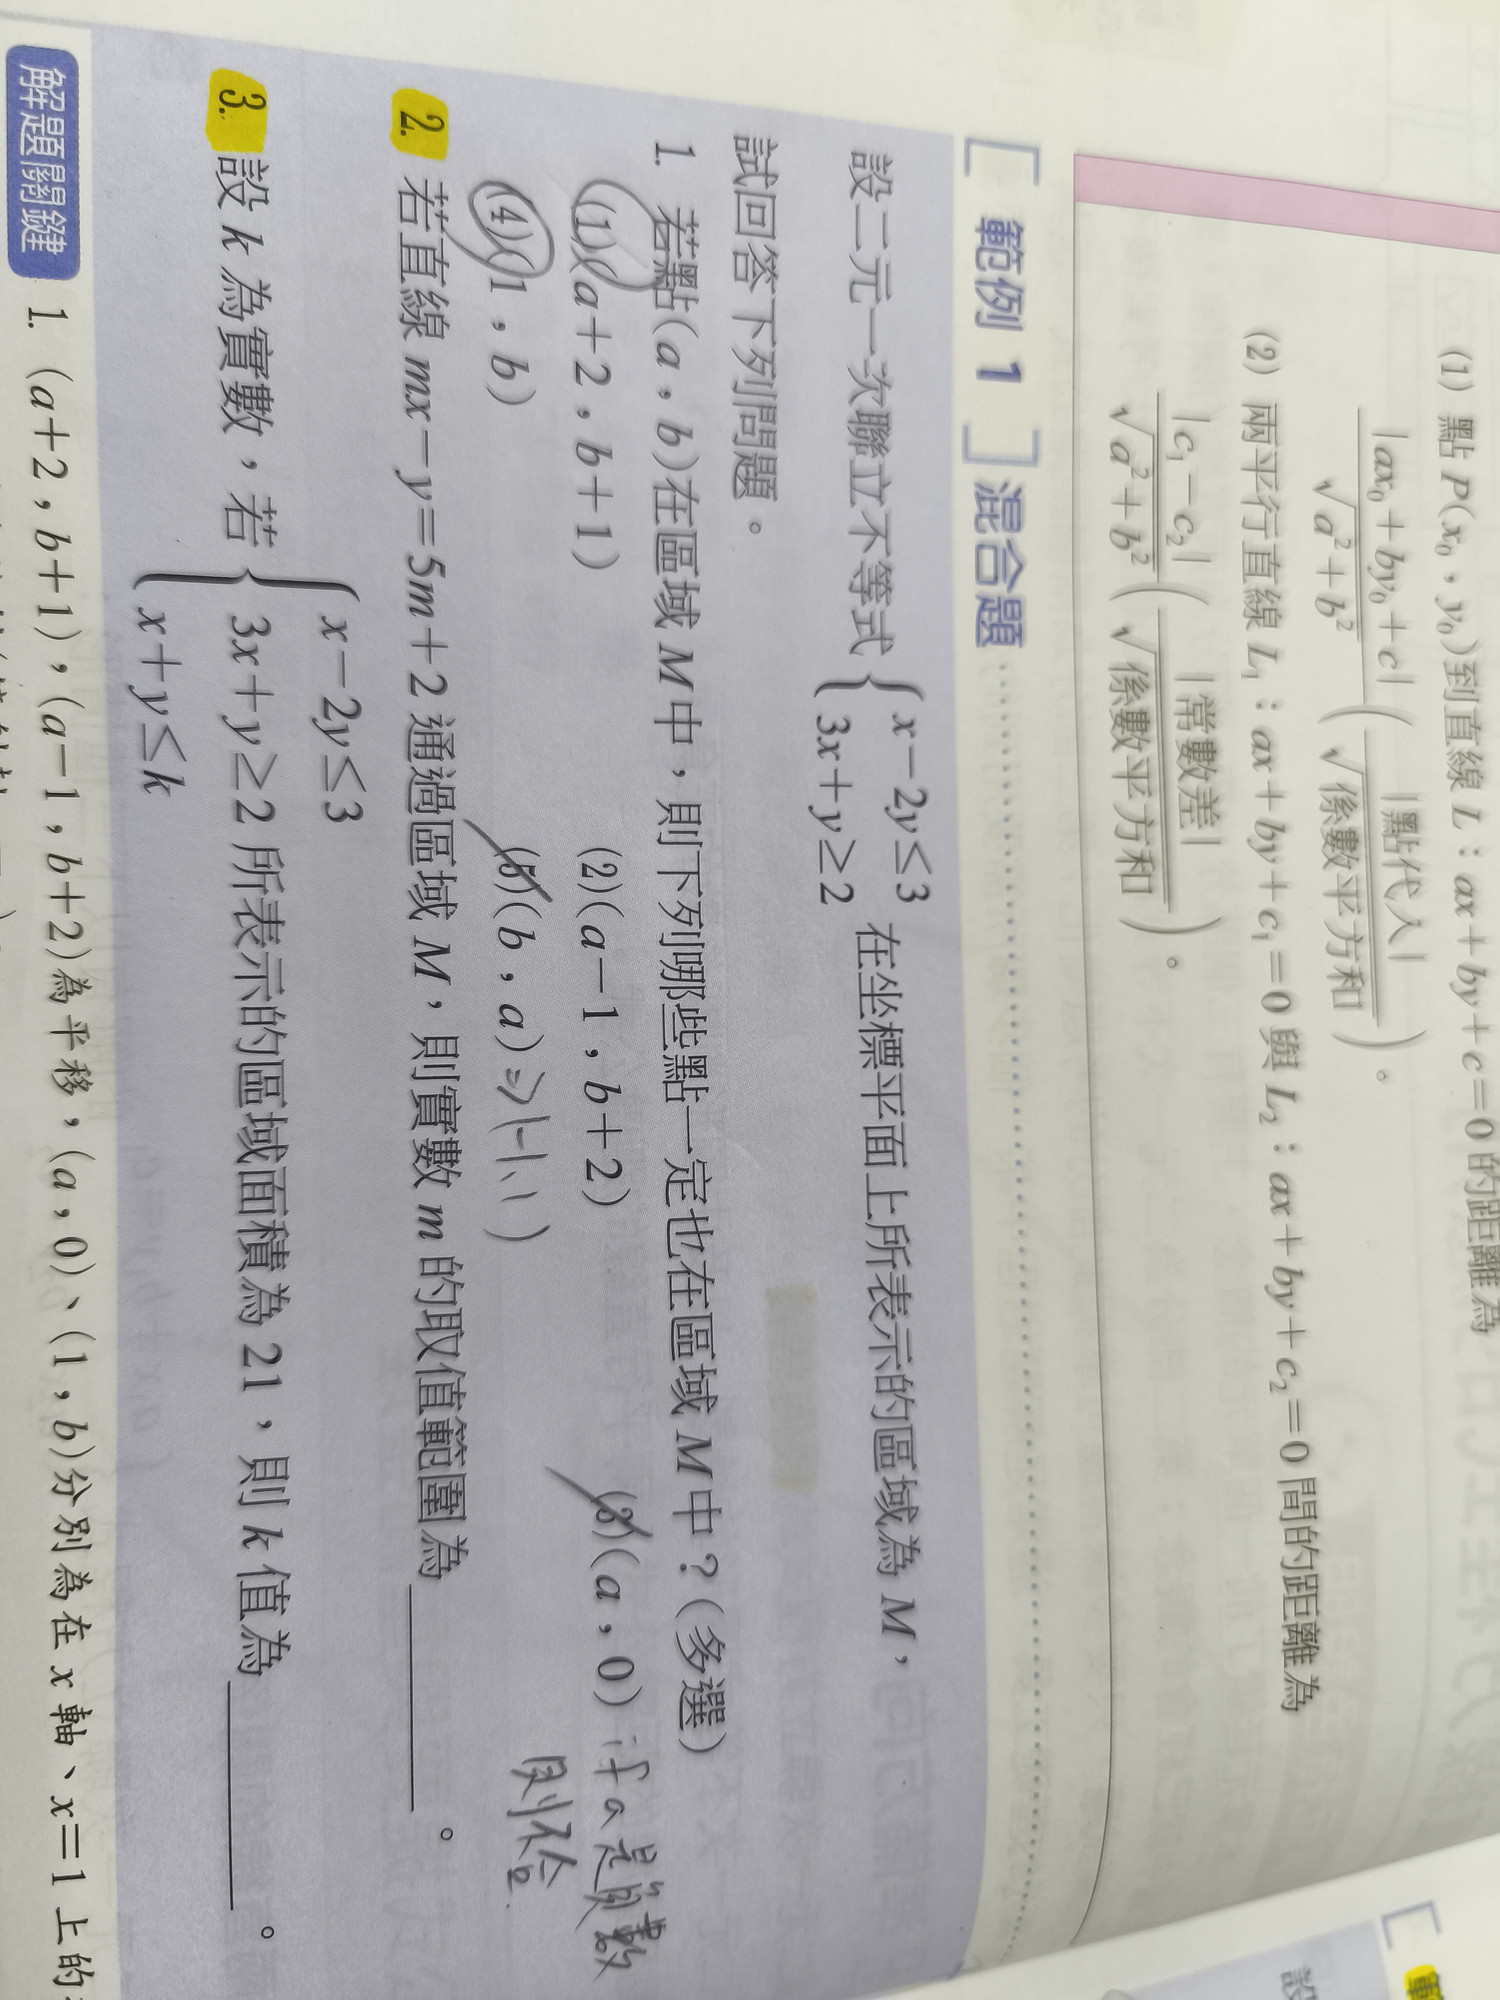 (1) 點 P(x₀，y₀)到直線 L：ax+by+c=0 的距離為
|ax₀+by₀+c| / √(a²+b²) ( |點代入| / √係數平方和 )。
(2) 兩平行直線 L₁：ax+by+c₁=0 與 L₂：ax+by+c₂=0 間的距離為
|c₁-c₂| / √(a²+b²) ( |常數差| / √係數平方和 )。
[ 範例 1 ] 混合題
設二元一次聯立不等式 { x-2y≤3
3x+y≥2 在坐標平面上所表示的區域為 M，
試回答下列問題。
1. 若點(a，b)在區域 M 中，則下列哪些點一定也在區域 M 中？(多選)
(1)(a+2，b+1) (2)(a-1，b+2) (3)(a，0) 若a是負數
則不合
(4)(1，b) (5)(b，a) ⇒(-1、1)
2. 若直線 mx-y=5m+2 通過區域 M，則實數 m 的取值範圍為＿＿＿＿。
3. 設 k 為實數，若 { x-2y≤3
3x+y≥2
x+y≤k 所表示的區域面積為 21，則 k 值為＿＿＿＿。
解題關鍵 1. (a+2，b+1)，(a-1，b+2)為平移，(a，0)、(1，b)分別為在 x 軸、x=1 上的